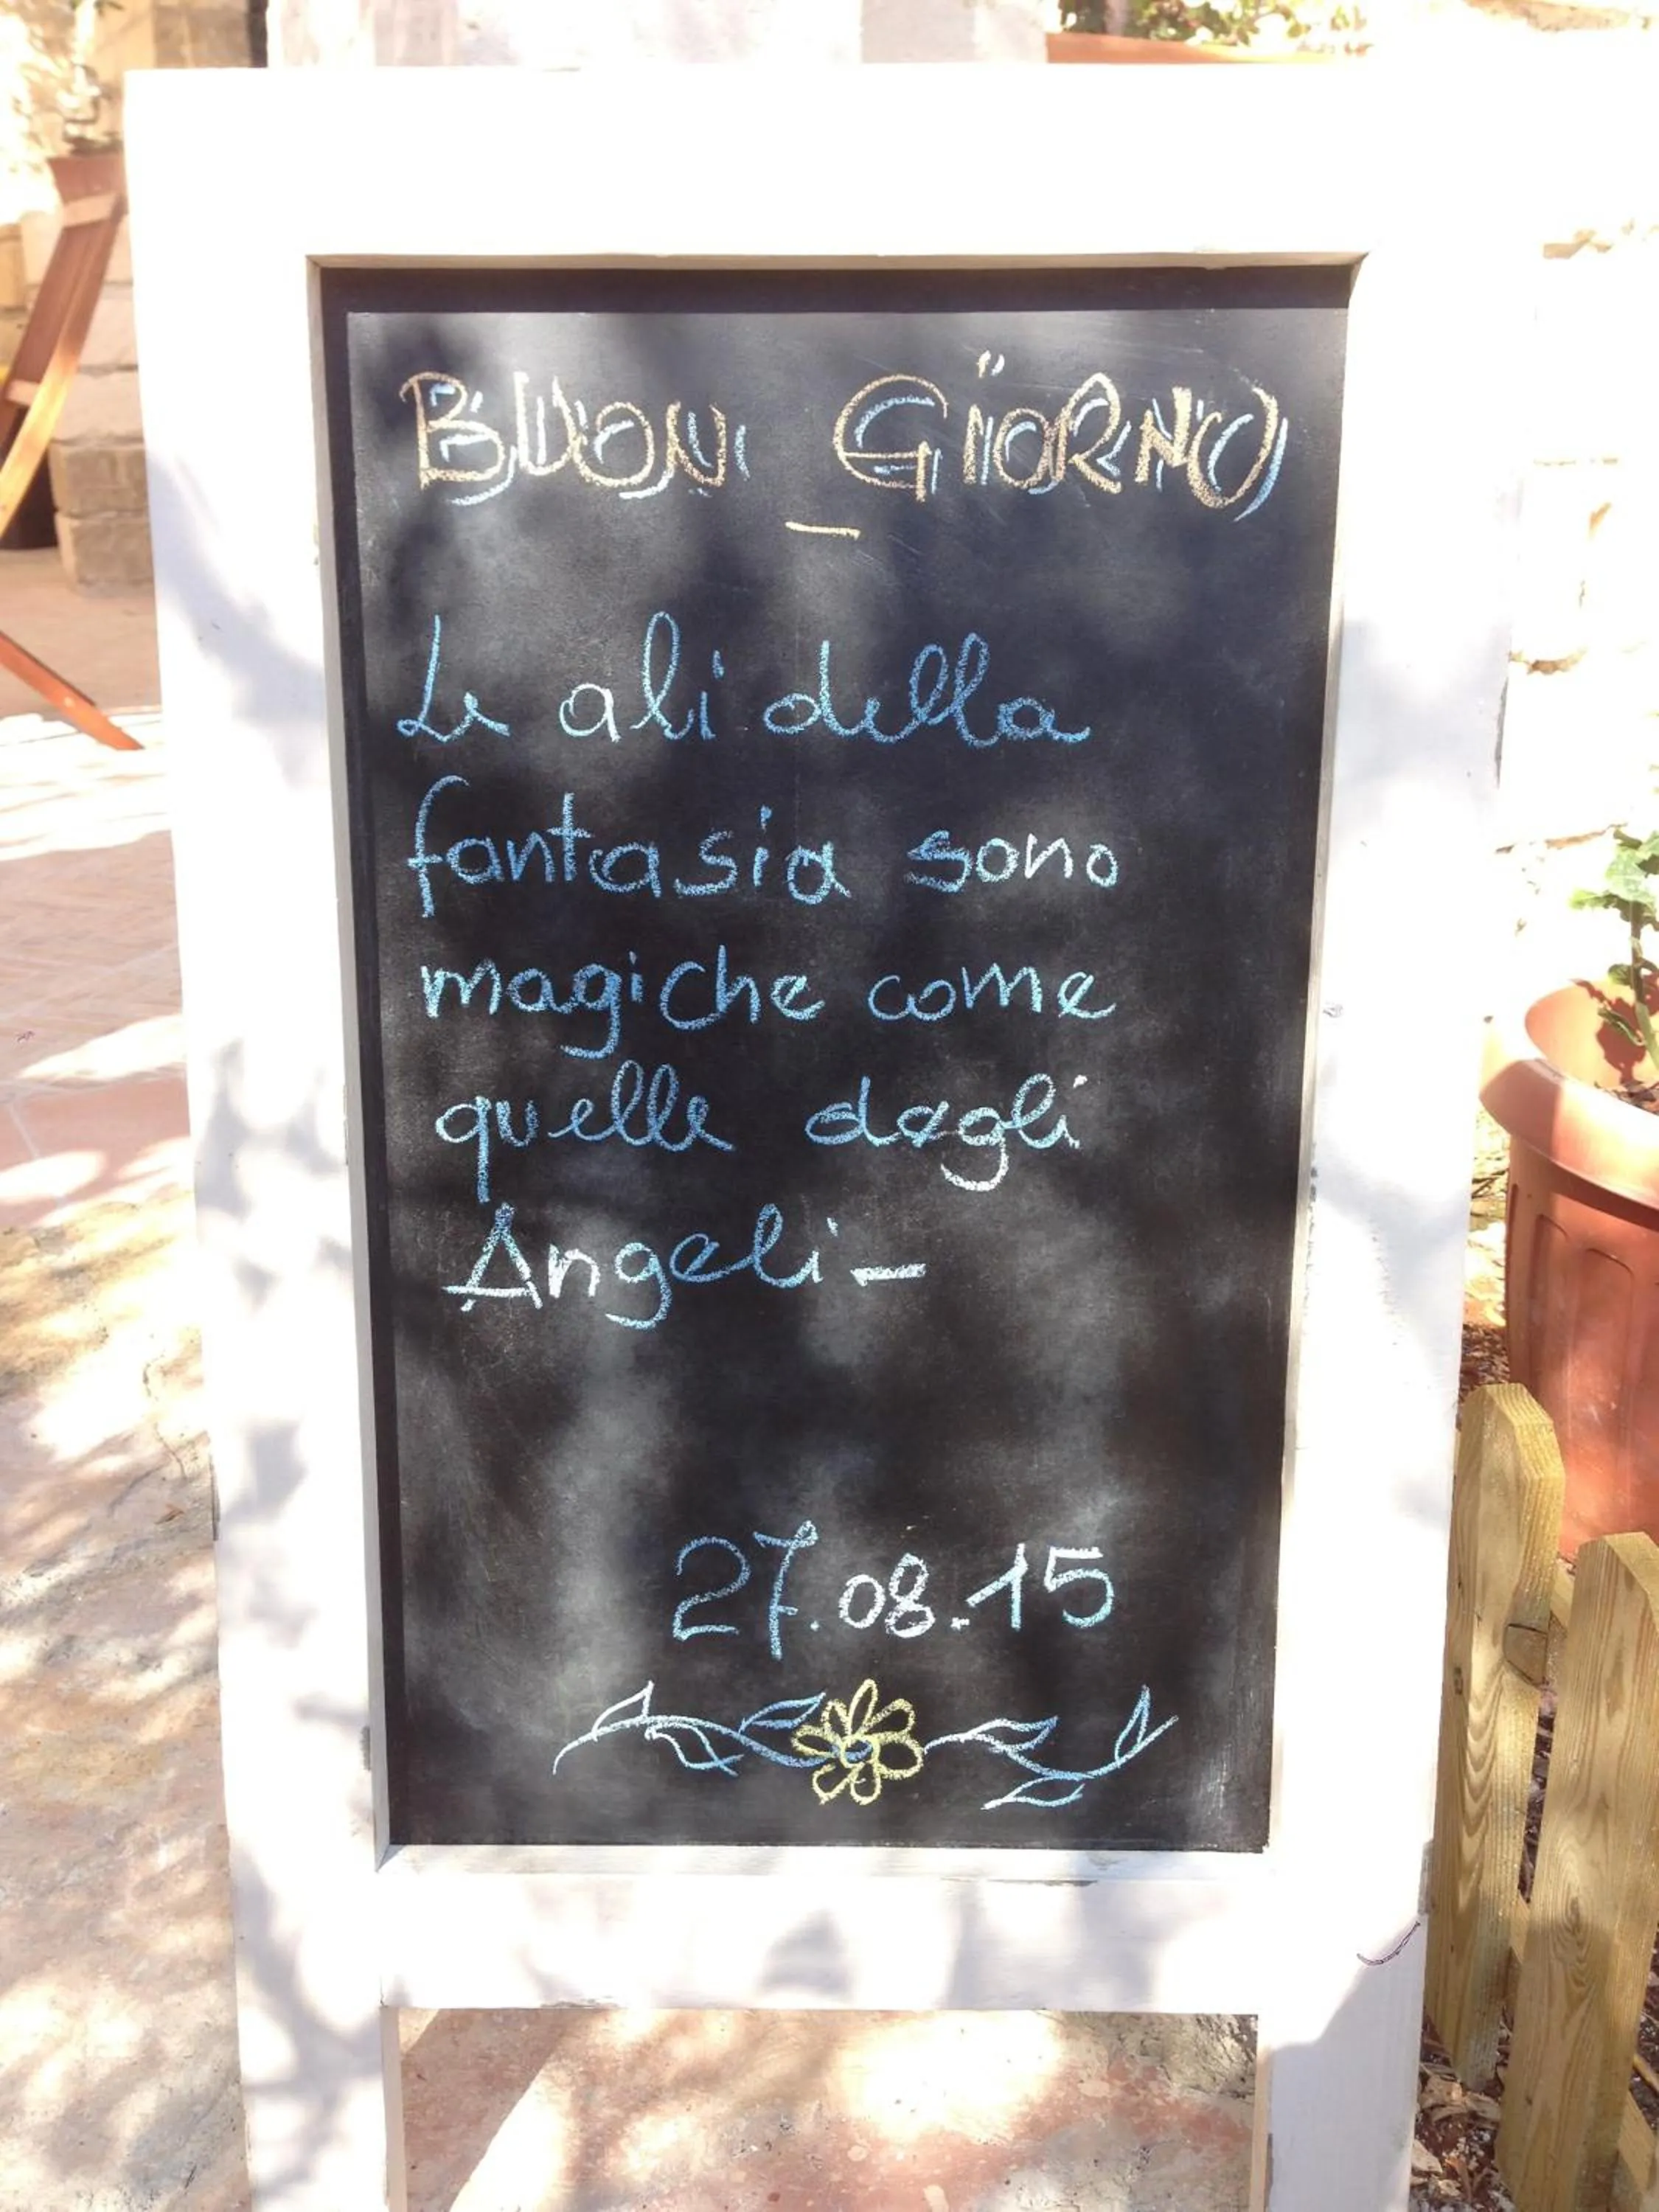 BUON GIORNO
Le ali della
fantasia sono
magiche come
quelle degli
Angeli -
27.08.15